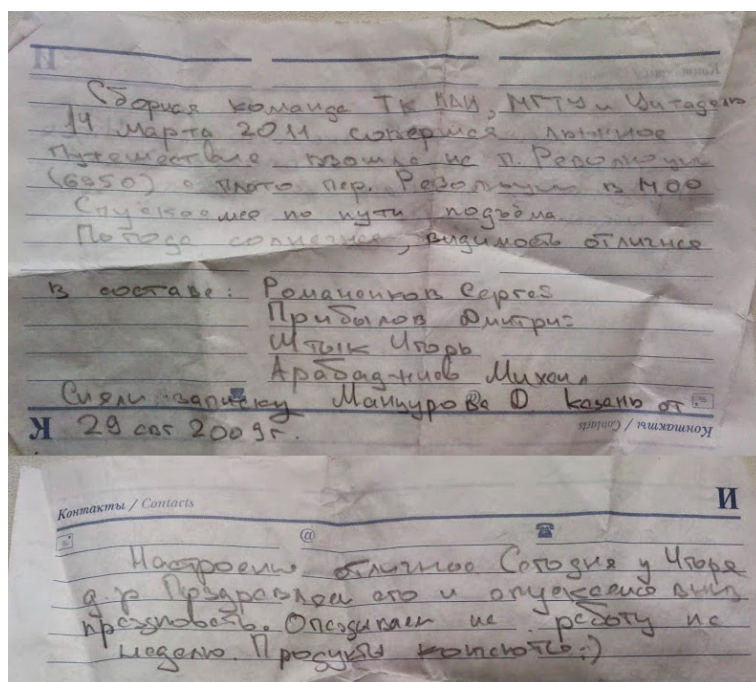 П
Контакты
Сборная команда ТК МАИ, МГТУ и Цитадель
14 марта 2011 совершая лыжное
путешествие взошла на п. Революции
(6950) с плато пер. Революции в 14 00
Спускаемся по пути подъёма
Погода солнечная, видимость отличная
В составе: Романенков Сергей
Прибылов Дмитрий
Штык Игорь
Арабаджиев Михаил
Сняли записку Манцурова Д Казань от
К 29 авг 2009г.
Контакты / Contacts
И
Контакты / Contacts
@
Настроение отличное Сегодня у Игоря
д.р Поздравляем его и спускаемся вниз
праздновать. Опаздываем на работу на
неделю. Продукты кончаются :)